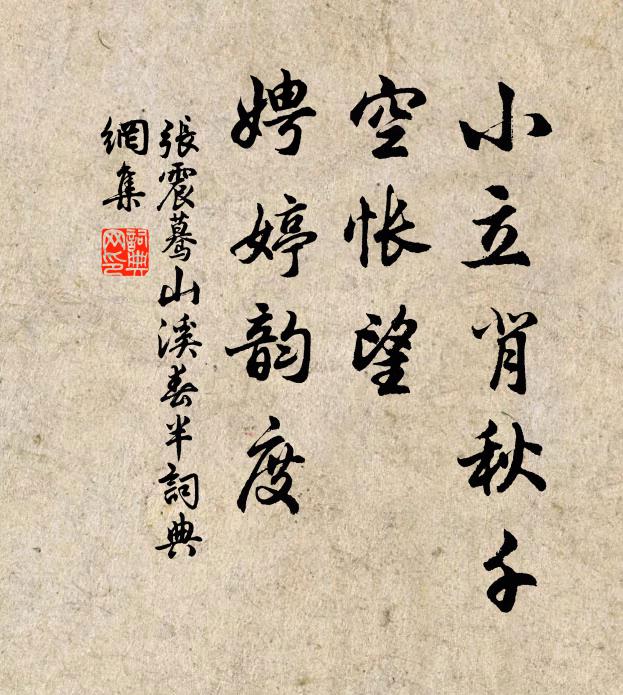 小立背秋千
空怅望
娉婷韵度
張震蓦山溪春半詞典
網集
詞典
网印